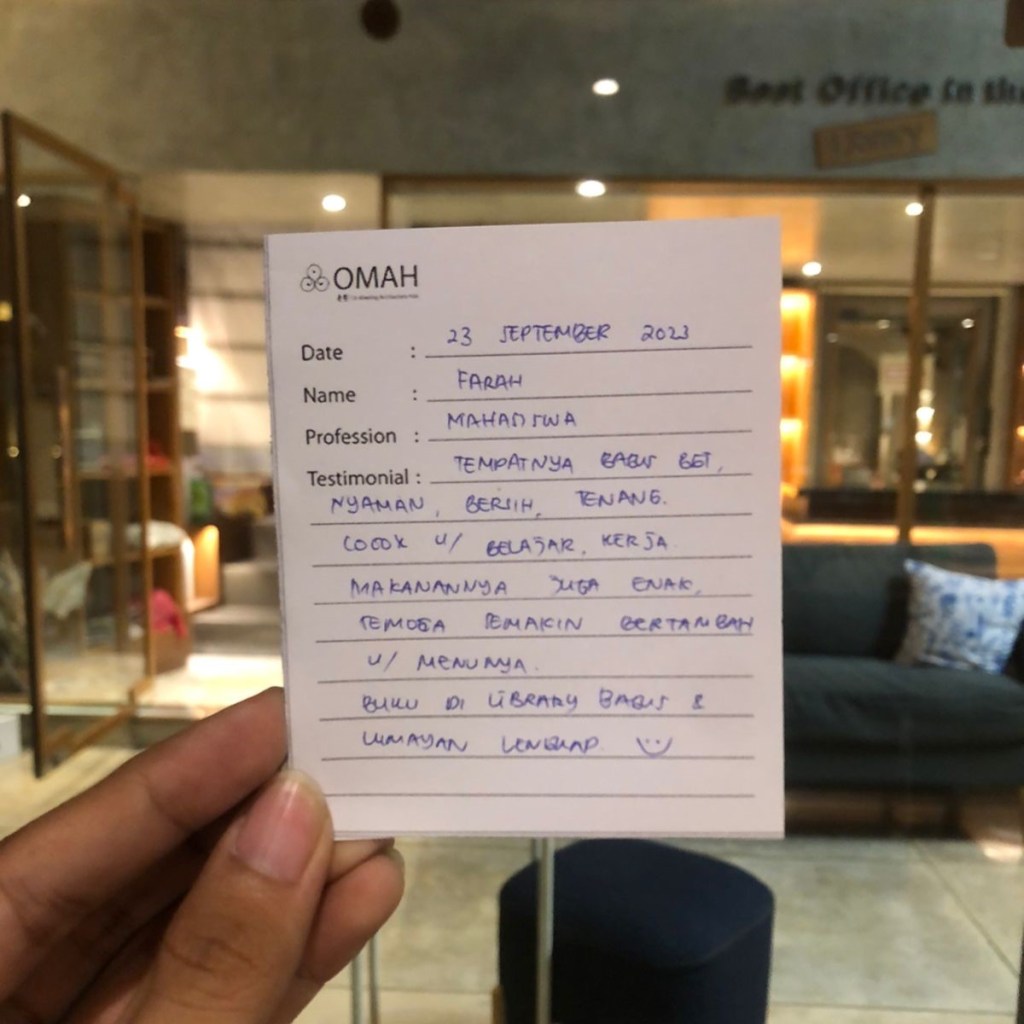 Best Office in the
OMAH
Date : 23 SEPTEMBER 2023
Name : FARAH
Profession : MAHASISWA
Testimonial : TEMPATNYA BAGUS BET,
NYAMAN, BERSIH, TENANG.
COCOK U/ BELAJAR, KERJA.
MAKANANNYA JUGA ENAK,
SEMOGA SEMAKIN BERTAMBAH
U/ MENUNYA.
BUKU DI LIBRARY BAGUS &
LUMAYAN LENGKAP.